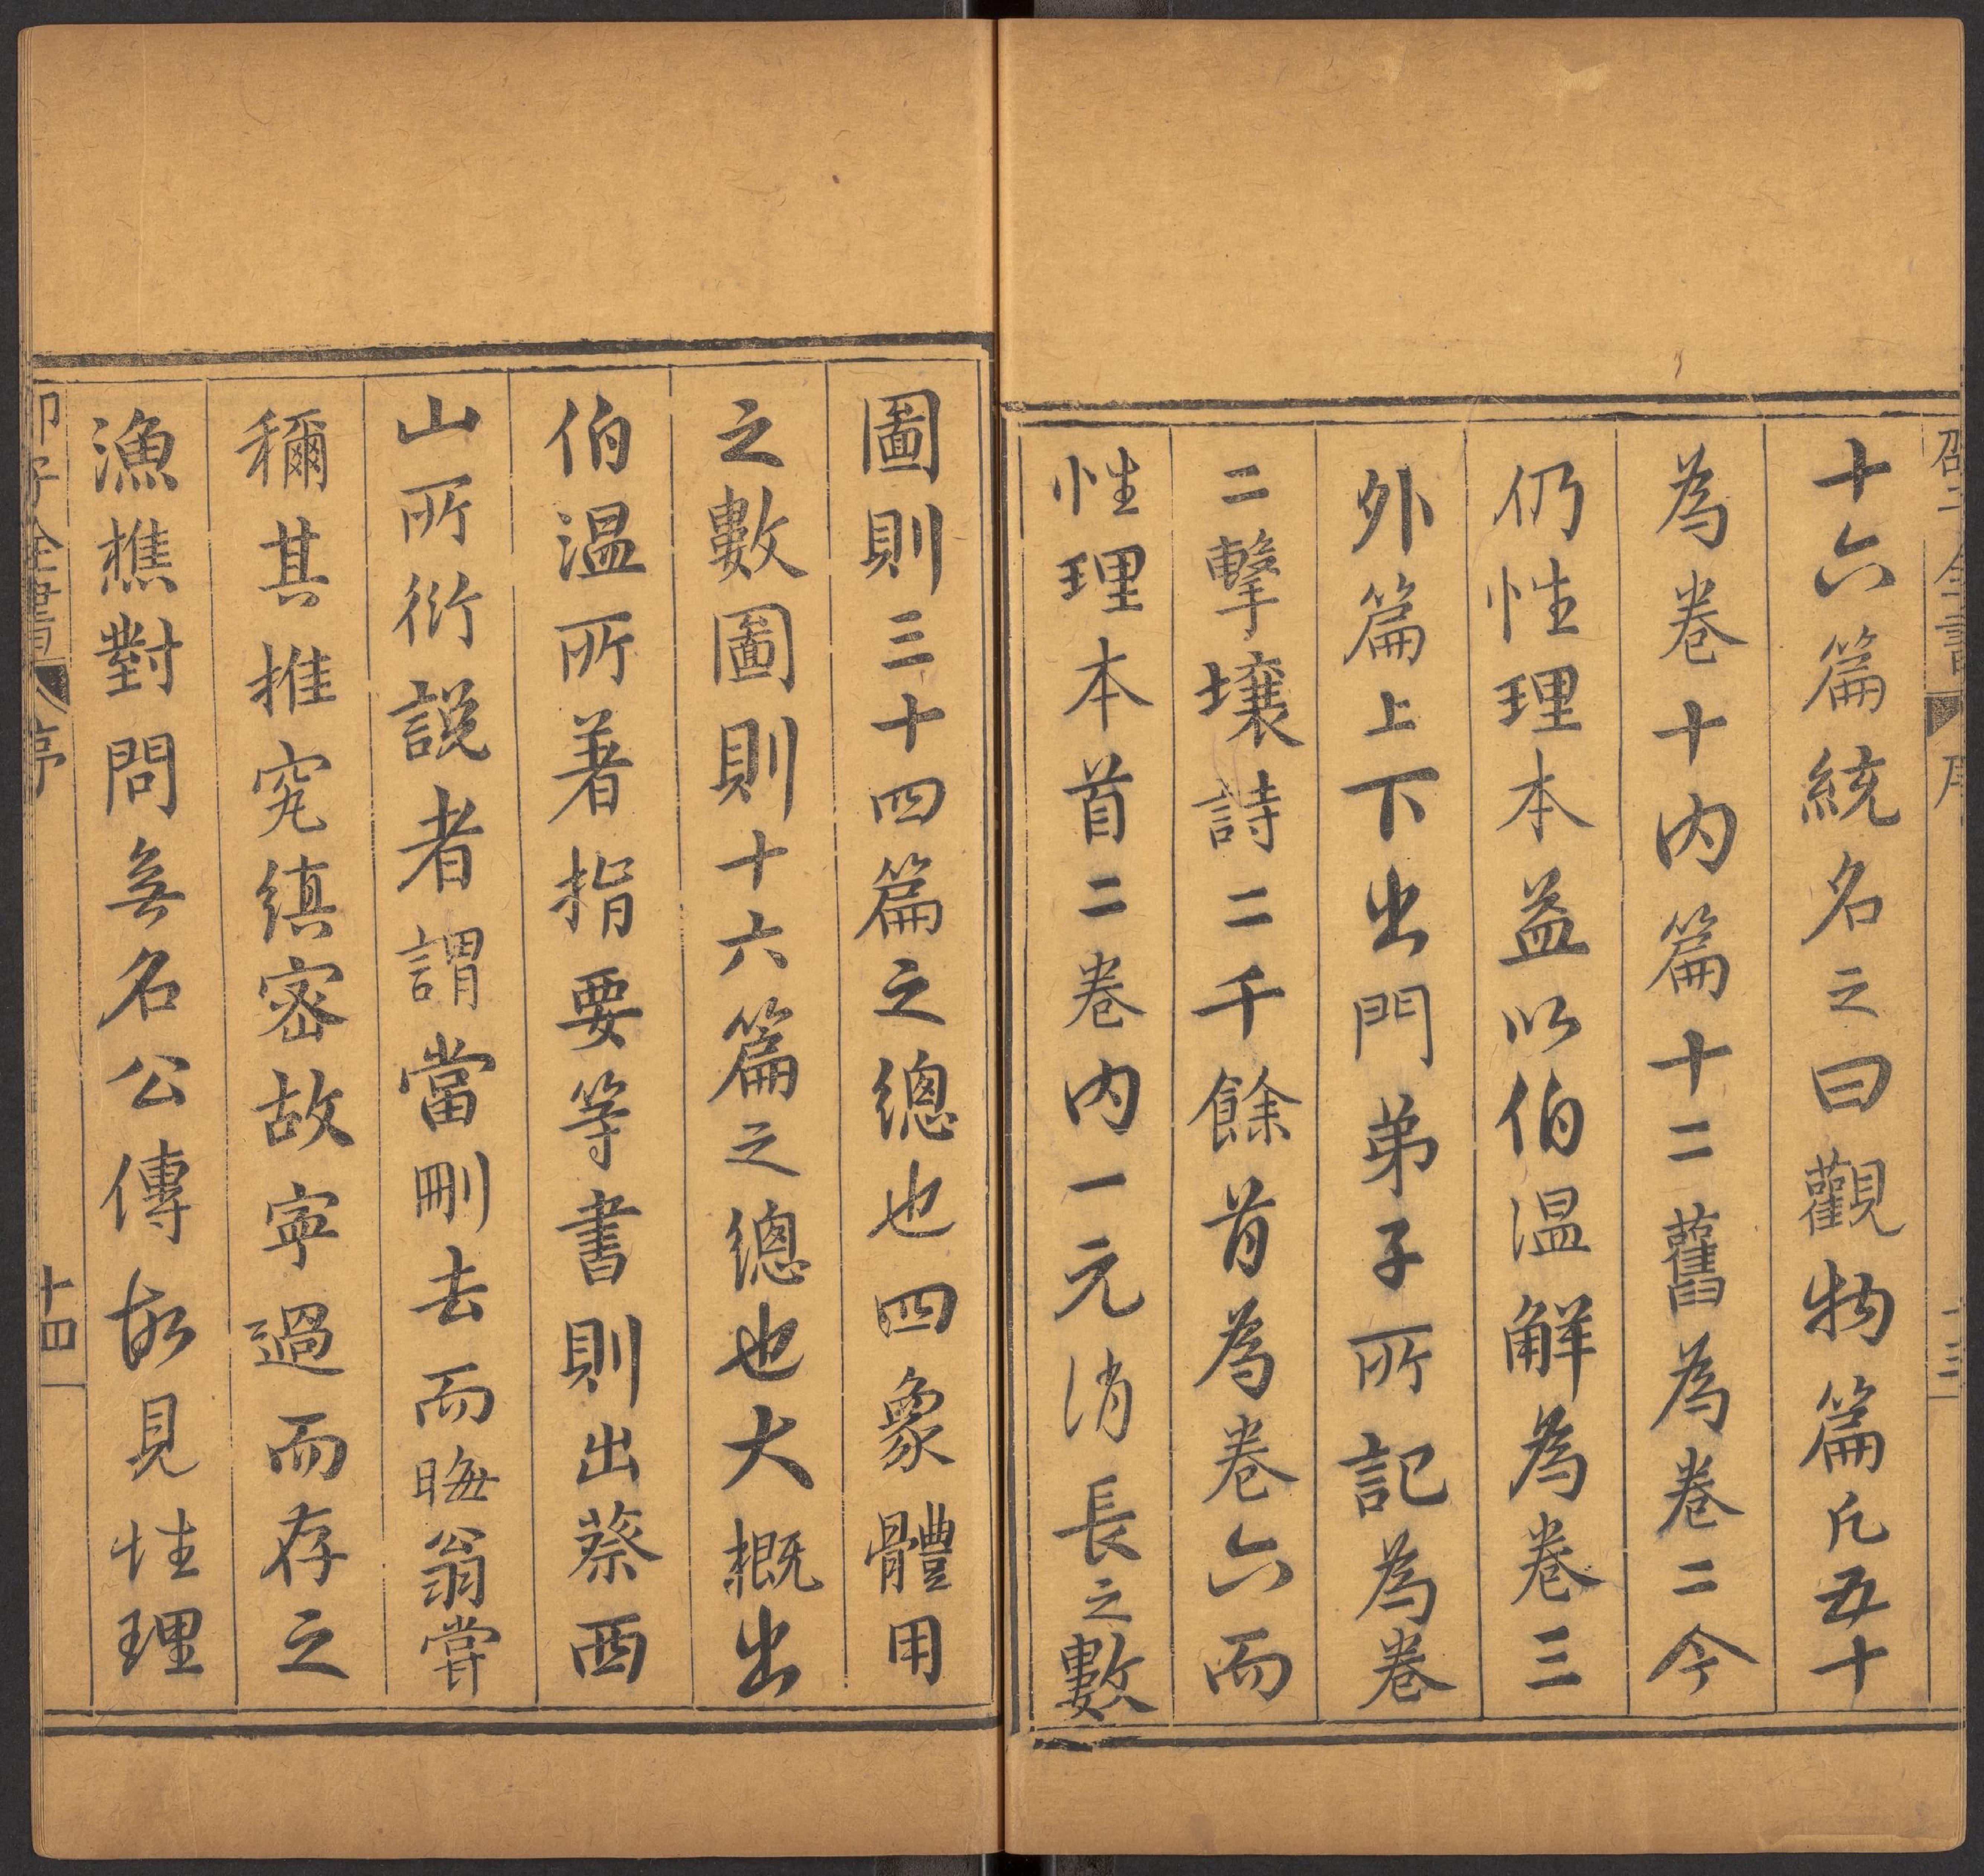 邵子全書 序 十三
十六篇統名之曰觀物篇凡五十
為卷十內篇十二舊為卷二今
仍性理本益以伯溫解為卷三
外篇上下出門弟子所記為卷
二擊壤詩二千餘首為卷六而
性理本首二卷內一元消長之數
圖則三十四篇之總也四象體用
之數圖則十六篇之總也大概出
伯溫所著指要等書則出蔡西
山所衍說者謂當刪去而晦翁嘗
稱其推究縝密故寧過而存之
漁樵對問無名公傳故見性理
邵子全書 序 十四